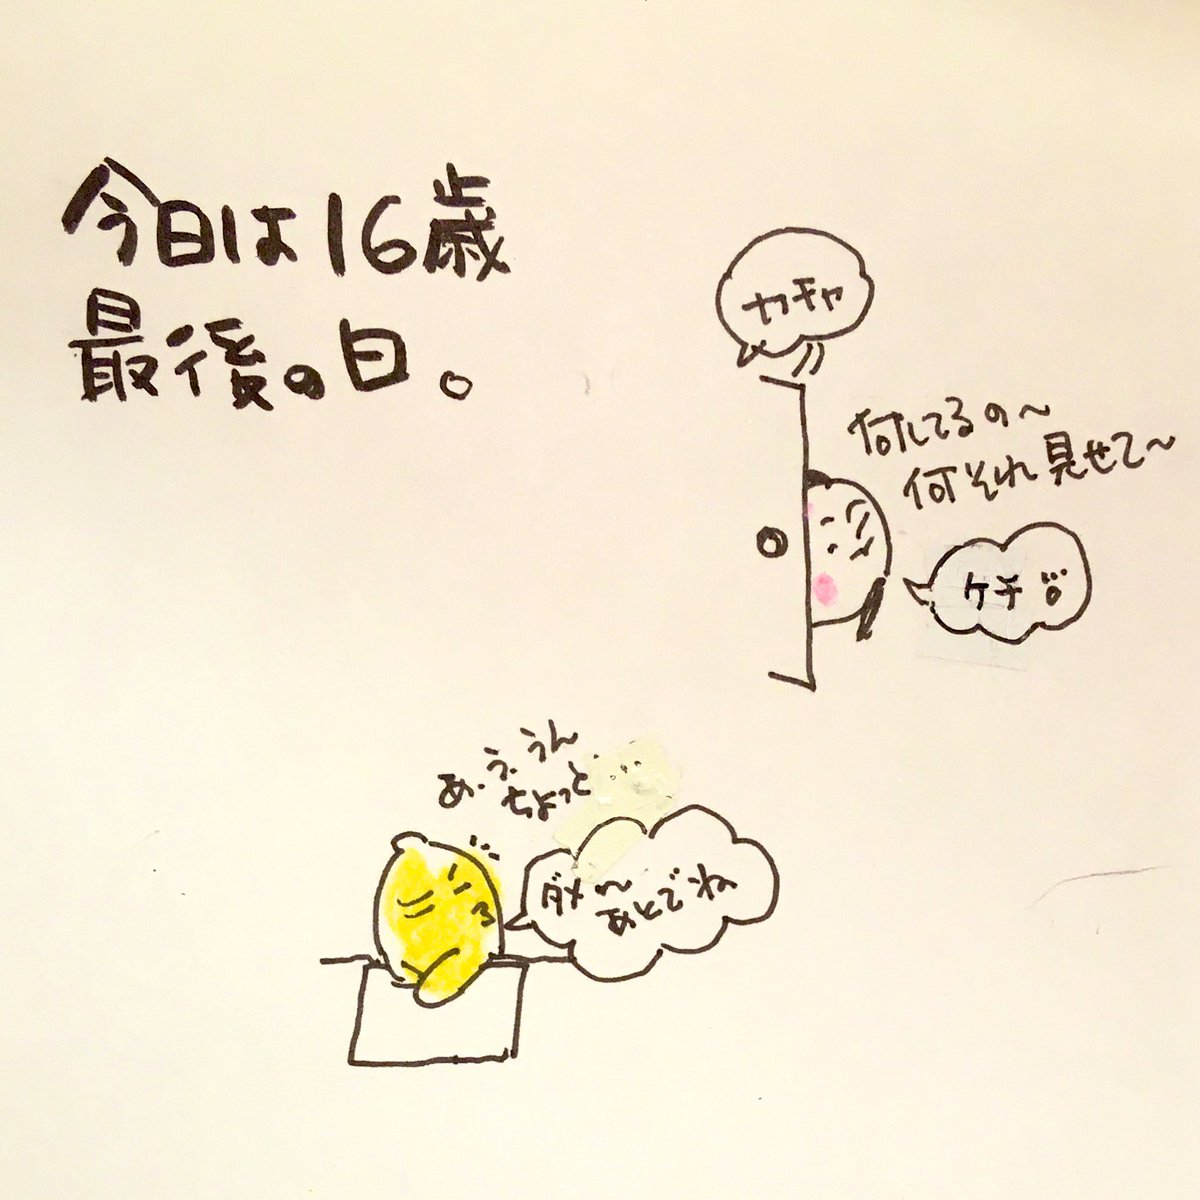 今日は16歳
最後の日。
カチャ
何してるの〜
何それ見せて〜
ケチ
あ、う、うん
ちょっと…
ダメ〜
あとでね